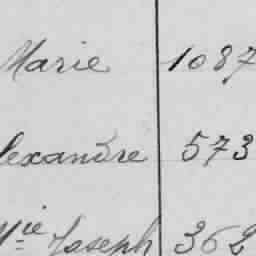 Marie 1087
lexandre 573
Vie Joseph 362